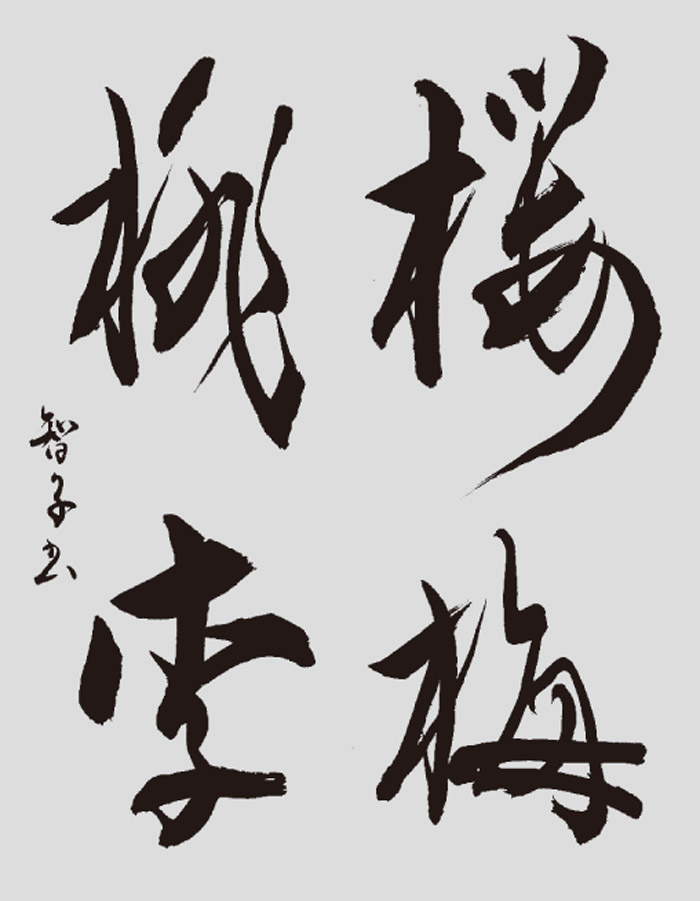 桜梅
桃李
智子书